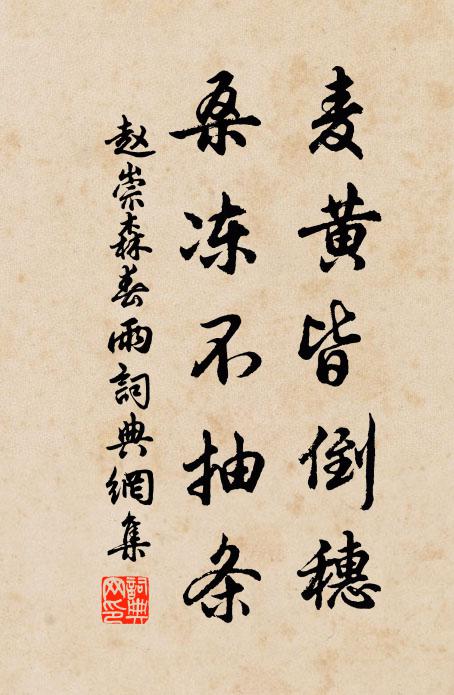 麦黄皆倒穗
桑冻不抽条
赵崇森春雨詞典網集
詞典网印